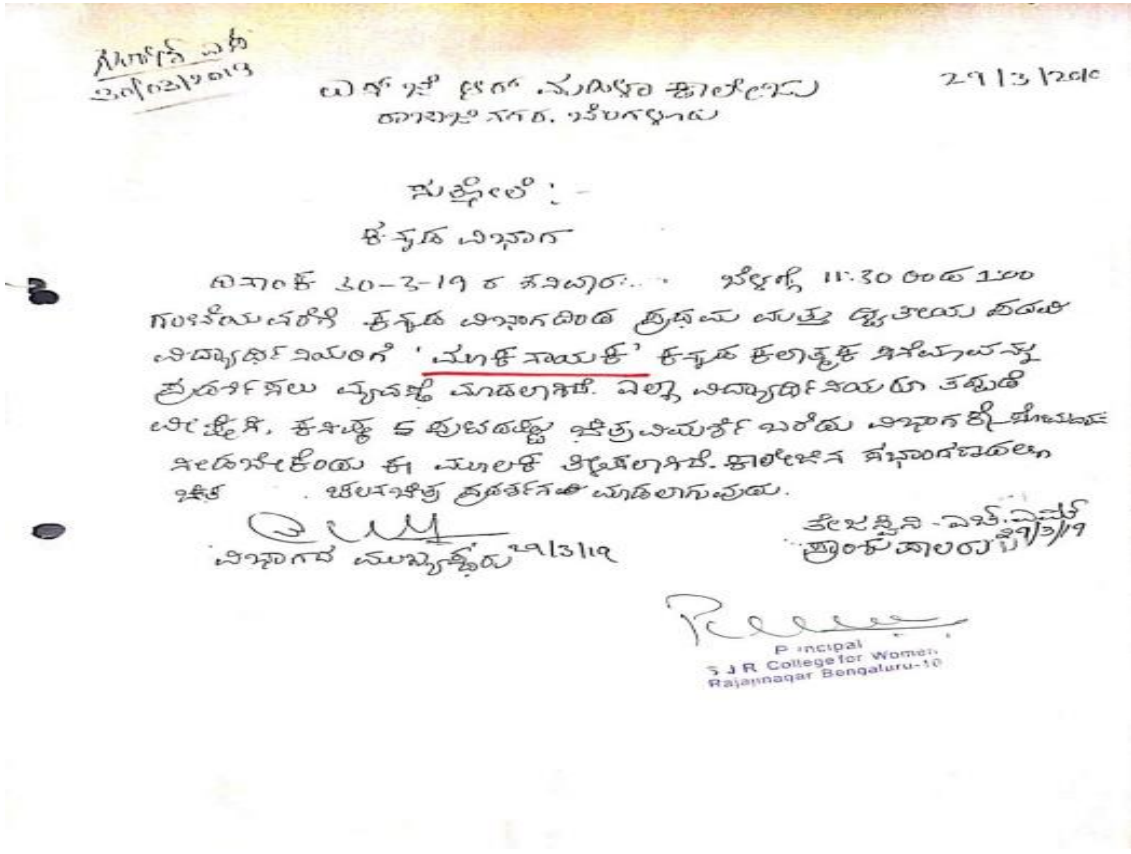 30/03/2019
ಎಸ್ ಜೆ ಆರ್ ಮಹಿಳಾ ಕಾಲೇಜು
29/3/20
ರಾಜಾಜಿನಗರ. ಬೆಂಗಳೂರು
ಸುತ್ತೋಲೆ :-
ಕನ್ನಡ ವಿಭಾಗ
ದಿನಾಂಕ 30-3-19 ರ ಶನಿವಾರ... ಬೆಳಗ್ಗೆ 11:30 ರಿಂದ 1:00
ಗಂಟೆಯವರೆಗೆ ಕನ್ನಡ ವಿಭಾಗದಿಂದ ಪ್ರಥಮ ಮತ್ತು ದ್ವಿತೀಯ ಪದವಿ
ವಿದ್ಯಾರ್ಥಿನಿಯರಿಗೆ 'ಮೂಕನಾಯಕ' ಕನ್ನಡ ಕಲಾತ್ಮಕ ಸಿನೆಮಾವನ್ನು
ಪ್ರದರ್ಶಿಸಲು ವ್ಯವಸ್ಥೆ ಮಾಡಲಾಗಿದೆ. ಎಲ್ಲಾ ವಿದ್ಯಾರ್ಥಿನಿಯರೂ ತಪ್ಪದೆ
ವೀಕ್ಷಿಸಿ, ಕನಿಷ್ಠ 5 ಪುಟದಷ್ಟು ಚಿತ್ರವಿಮರ್ಶೆ ಬರೆದು ವಿಭಾಗಕ್ಕೆ
ನೀಡಬೇಕೆಂದು ಈ ಮೂಲಕ ತಿಳಿಸಲಾಗಿದೆ. ಕಾಲೇಜಿನ ಸಭಾಂಗಣದಲ್ಲಿ
ಚಲನಚಿತ್ರ ಪ್ರದರ್ಶನ ಮಾಡಲಾಗುವುದು.
ವಿಭಾಗದ ಮುಖ್ಯಸ್ಥರು 29/3/19
ತೇಜಸ್ವಿನಿ . ಎಚ್. ಎಮ್
ಪ್ರಾಂಶುಪಾಲರು 29/3/19
Principal
S J R College for Women
Rajajinagar Bengaluru-10